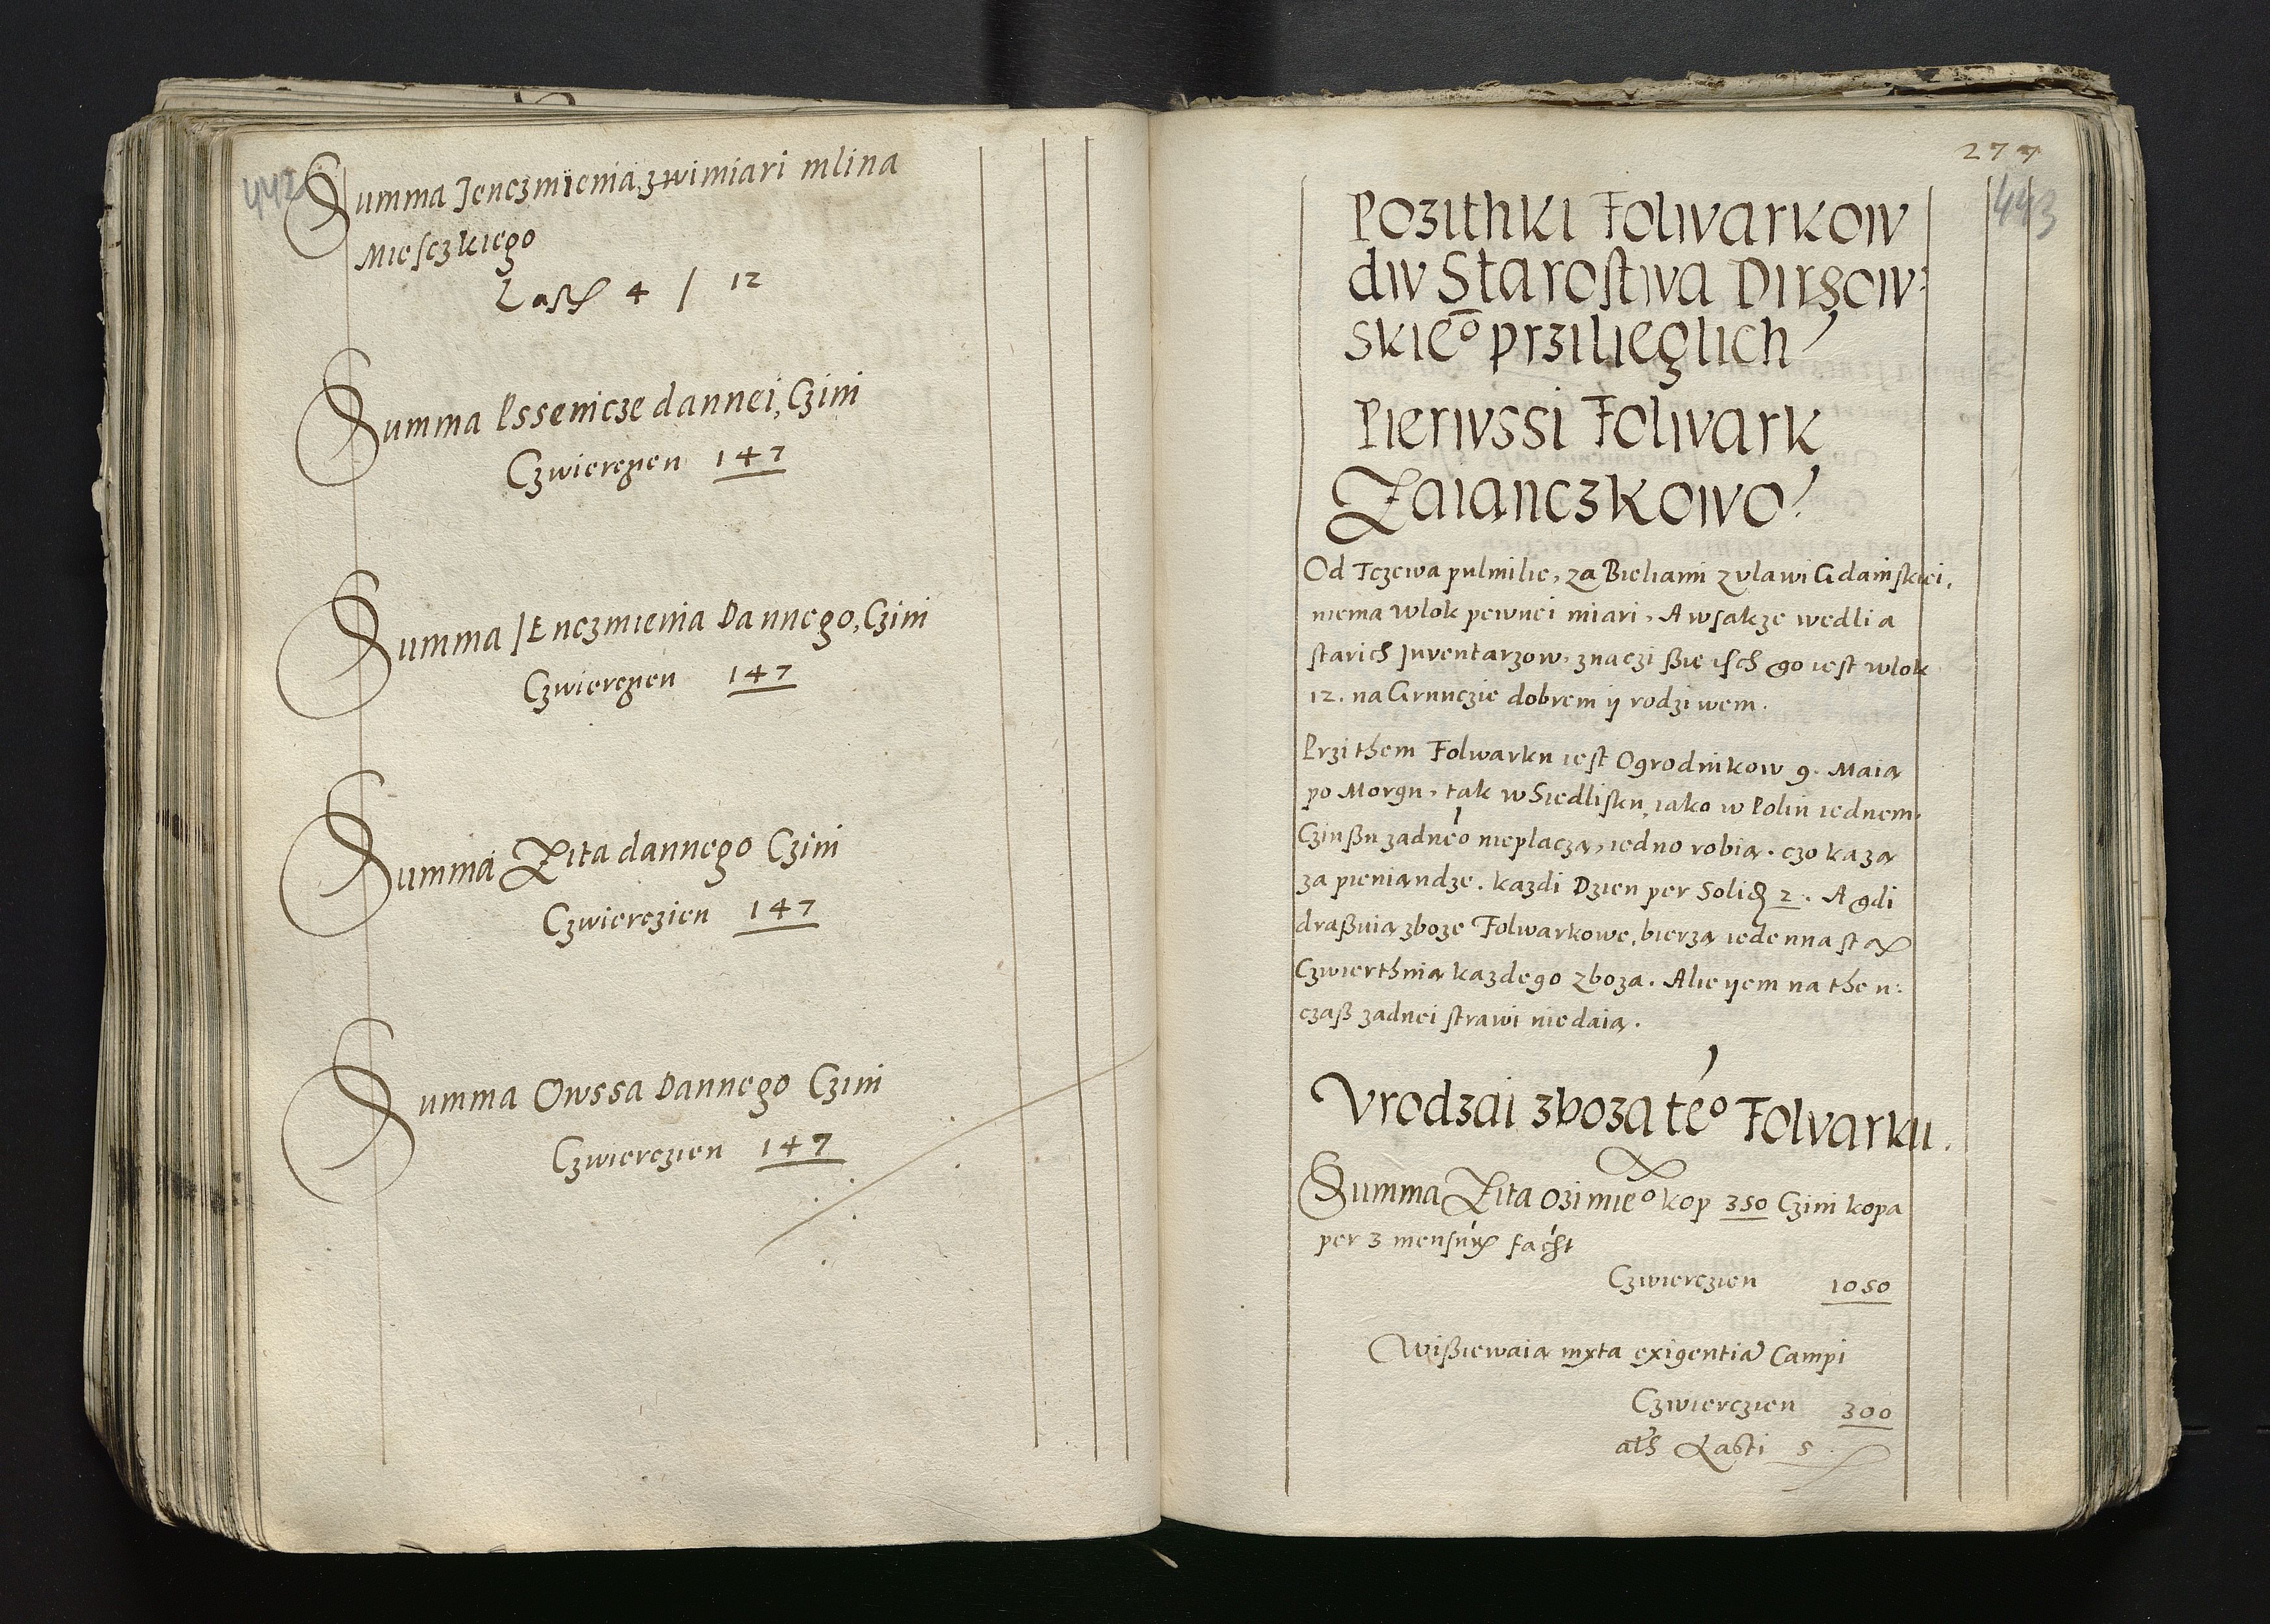 442
Summa Jenczmienia zwimiari mlina
Miesczkiego
Last 4 / 12
Summa Pssenicze dannei, Czini
Czwierczien 147
Summa Jenczmienia Dannego, Czini
Czwierczien 147
Summa Zita dannego Czini
Czwierczien 147
Summa Owssa Dannego Czini
Czwierczien 147
277
443
Pozithki Folwarkow
dw Starostwa Dirsow-
skieo przilieglich
Pierwssi Folwark
Zaianczkowo
Od Tczewa pulmilie, za Bieliami zulawi Gdainskiei,
niema Wlok pewnei miari, A wsakze wedlia
starich Inventarzow, znaczi ßie isch go iest wlok
12. na Grunczie dobrem ij rodziwem.
Przi them Folwarku iest Ogrodnikow 9. Maia
po Morgu, tak w Siedlisku, iako w Poliu iednem.
Czinßu zadneo nieplacza, iedno robia. czo kaza
za pieniandze. kazdi Dzien per Solid 2. A gdi
draßuia zboze Folwarkowe, bierza iedennasta
Czwierthnia kazdego zboza. Alie ijem na then:
czaß zadnei strawi niedaia.
Vrodzai zboza teo Folvarku.
Summa Zita ozimieo kop 350 Czini kopa
per 3 mensur facht
Czwierczien 1050
Wißiewaia iuxta exigentia Campi
Czwierczien 300
als Lasti 5